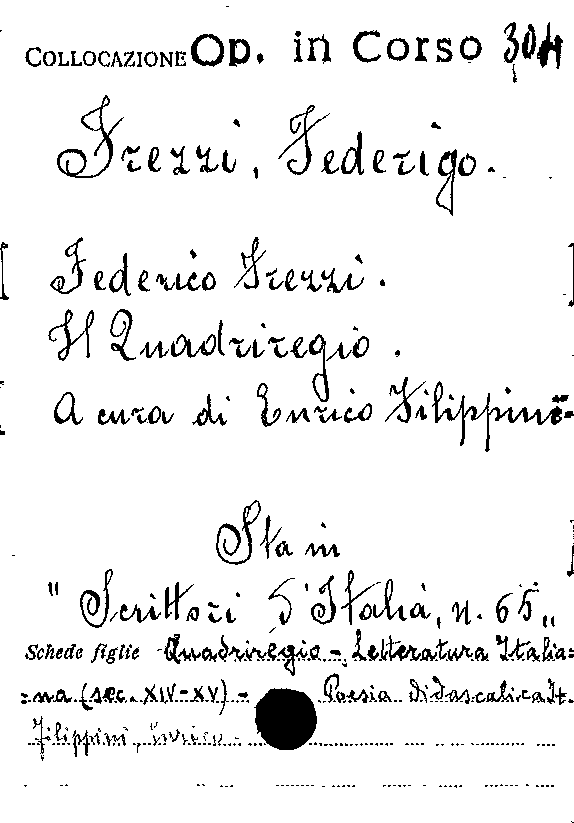 COLLOCAZIONE Op. in Corso 304
Frezzi, Federigo.
Federico Frezzi.
Il Quadriregio.
A cura di Enrico Filippini-
Sta in
"Scrittori d'Italia, n. 65"
Schede figlie Quadriregio - Letteratura Italia=
=na (sec. XIV-XV) - Poesia didascalica It.
Filippini, Enrico.